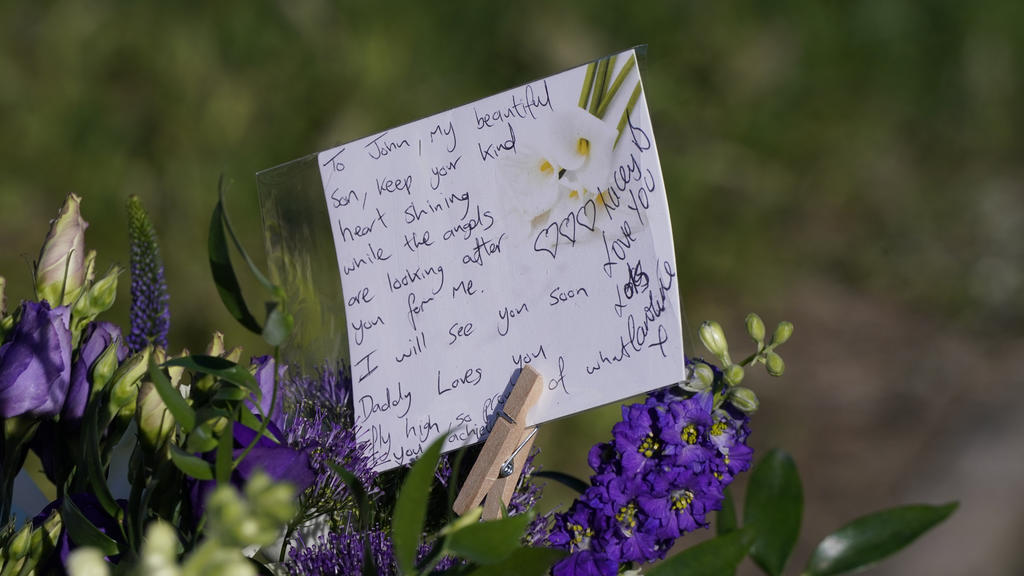 To John, My beautiful
son, keep your kind
heart shining
while the angels
are looking after
you for me.
I will see you soon
Daddy Loves you
fly high so of what
Love you
Lots